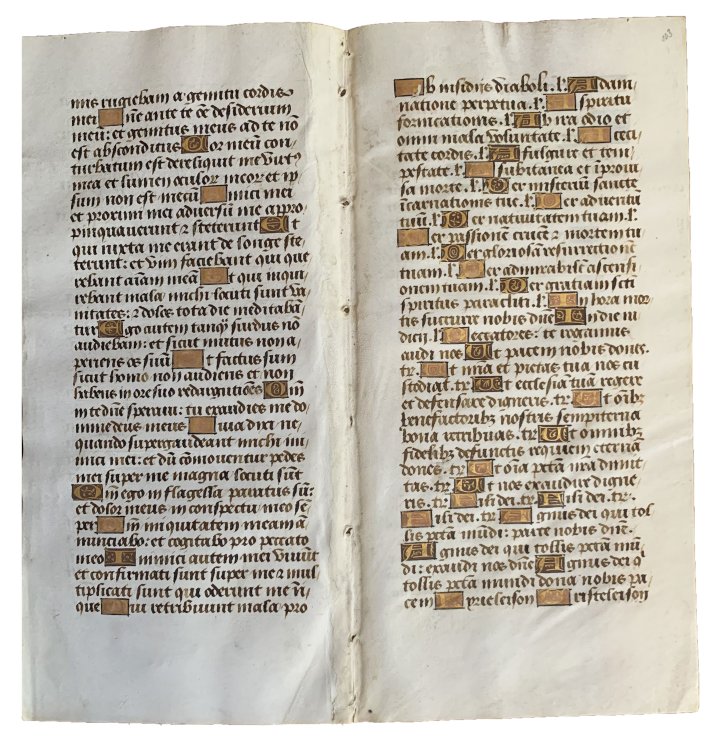 mis rugiebam a gemitu cordis
mei Dñe ante te õe desiderium
meũ: et gemitus meus ad te nõ
est absconditus Cor meũ con/
turbatum est dereliquit me virtꝰ
mea et lumen oculor meor et ip̃
sum non est mecũ Amici mei
et proximi mei adversũ me appro/
pinquaverunt ⁊ steterunt Et
qui iuxta me erant de longe ste/
terunt: et vim faciebant qui que/
rebant aĩam meã Et qui inqui/
rebant mala michi locuti sunt va/
nitates: ⁊ dolos tota die meditabã/
tur Ego autem tanq̃ surdus nõ
audiebam: et sicut mutus non a/
periens os suũ Et factus sum
sicut homo non audiens et non
habens in ore suo redargutiões Qm̃
in te dñe speravi: tu exaudies me do/
mine deus meus Quia dixi ne/
quando supergaudeant michi ini/
mici mei: et dũ cõmoventur pedes
mei super me magna locuti sũt
Qm̃ ego in flagella paratus sũ:
et dolor meus in conspectu meo se/
per Qm̃ iniquitatem meam ã/
nunciabo: et cogitabo pro peccato
meo Inimici autem mei vivũt
et confirmati sunt super me ⁊ mul/
tiplicati sunt qui oderunt me ĩi/
que Qui retribuunt mala pro
103
Ab insidijs diaboli. lˀ. A dam/
natione perpetua. lˀ. A spiritu
fornicationis. lˀ. Ab ira ⁊ odio et
omni mala voluntate. lˀ. A ceci/
tate cordis. lˀ. A fulgure et tem/
pestate. lˀ. A subitanea et ĩprovi/
sa morte. lˀ. Per misteriũ sancte
ĩcarnationis tue. lˀ. Per adventũ
tuũ. lˀ. Per nativitatem tuam. lˀ.
Per passionẽ crucẽ ⁊ mortem tu/
am. lˀ. Per gloriosã resurrectionẽ
tuam. lˀ. Per admirabilẽ ascensi/
onem tuam. lˀ. Per gratiam sc̃ti
spiritus paracliti. lˀ. In hora mor/
tis succurre nobis dñe In die iu/
dicij. lˀ. Peccatores: te rogamus
audi nos Ut pacem nobis dones.
tr̃. Ut mĩa et pietas tua nos cu/
stodiat. tr̃ Ut ecclesiã tuã regere
et defensare digneris. tr̃ Ut õibꝫ
benefactoribꝫ nostris sempiterna
bona retribuas. tr̃ Ut omnibꝫ
fidelibꝫ defunctis requiem eternã
dones. tr̃ Ut oĩa pctã nrã dimit/
tas. tr̃ Ut nos exaudire digne/
ris. tr̃ Fili dei. tr̃ Fili dei. tr̃.
Fili dei. tr̃ Agnus dei qui tol/
lis pctã mũdi: parce nobis dñe.
Agnus dei qui tollis pctã mũ/
di: exaudi nos dñe Agnus dei q̃
tollis pctã mundi dona nobis pa/
cem Kyrieleison Xpristeleison